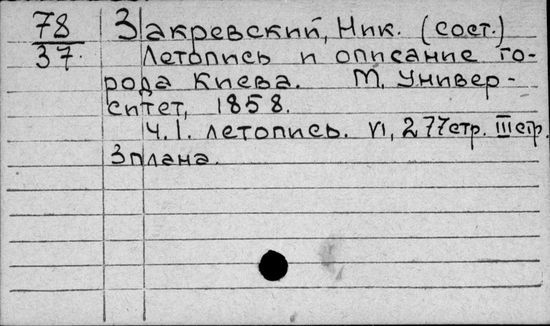 78
37.
Закревский, Ник. (сост.)
Летопись и описание го-
рода Киева. М, Универ-
ситет, 1858.
Ч.I. летопись. VI, 277стр. III стр.
3 плана.